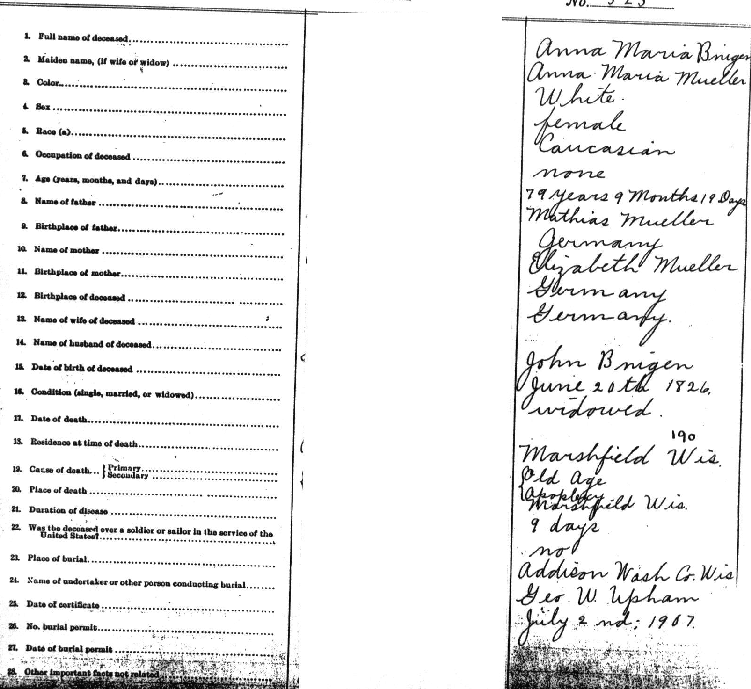 No. 523
1. Full name of deceased
2. Maiden name, (if wife or widow)
3. Color
4. Sex
5. Race (a)
6. Occupation of deceased
7. Age (years, months, and days)
8. Name of father
9. Birthplace of father
10. Name of mother
11. Birthplace of mother
12. Birthplace of deceased
13. Name of wife of deceased
14. Name of husband of deceased
15. Date of birth of deceased
16. Condition (single, married, or widowed)
17. Date of death
18. Residence at time of death
19. Cause of death... { Primary
Secondary
20. Place of death
21. Duration of disease
22. Was the deceased ever a soldier or sailor in the service of the
United States?
23. Place of burial
24. Name of undertaker or other person conducting burial
25. Date of certificate
26. No. burial permit
27. Date of burial permit
28. Other important facts not related
Anna Maria Bnigen
Anna Maria Mueller
White.
female
Caucasian
none
79 Years 9 Months 19 Days
Mathias Mueller
Germany
Elizabeth Mueller
Germany
Germany.
John Bnigen
June 20th 1826.
widowed.
190
Marshfield Wis.
Old Age
Apoplexy
Marshfield Wis.
9 days
no
Addison Wash Co. Wis
Geo W. Upham
July 2nd; 1907